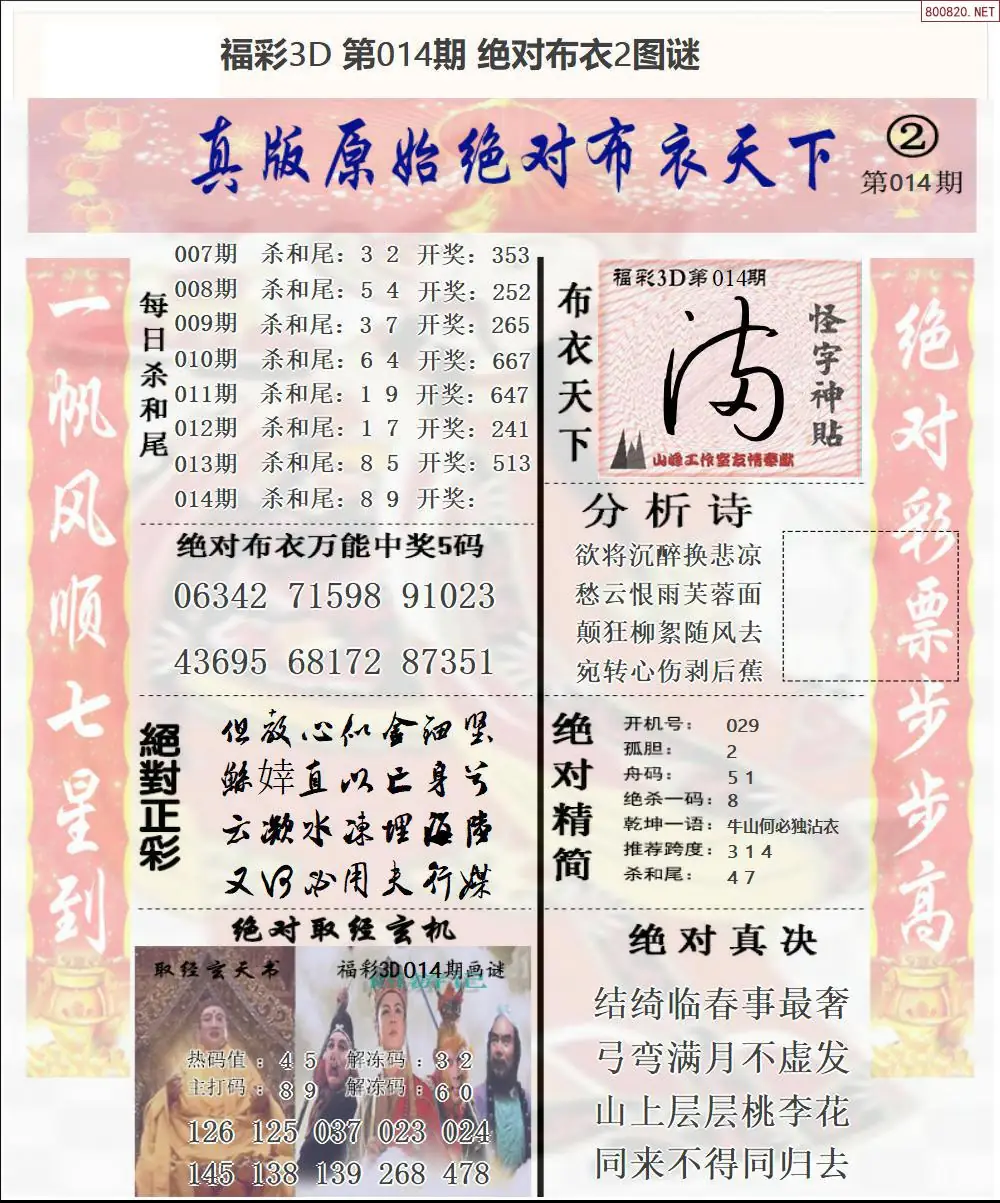 800820.NET
福彩3D 第014期 绝对布衣2图谜
真版原始绝对布衣天下
②
第014期
一帆风顺七星到
每日杀和尾
007期 杀和尾：3 2 开奖：353
008期 杀和尾：5 4 开奖：252
009期 杀和尾：3 7 开奖：265
010期 杀和尾：6 4 开奖：667
011期 杀和尾：1 9 开奖：647
012期 杀和尾：1 7 开奖：241
013期 杀和尾：8 5 开奖：513
014期 杀和尾：8 9 开奖：
绝对布衣万能中奖5码
06342 71598 91023
43695 68172 87351
絕對正彩
但教心似金钿坚
鲧婞直以亡身兮
云濑水凍埋海陸
又何必用夫行媒
绝对取经玄机
取经玄天书
福彩3D014期画谜
热码值：4 5 解冻码：3 2
主打码：8 9 解冻码：6 0
126 125 037 023 024
145 138 139 268 478
布衣天下
福彩3D第014期
怪字神貼
山峰工作室友情奉献
分析诗
欲将沉醉换悲凉
愁云恨雨芙蓉面
颠狂柳絮随风去
宛转心伤剥后蕉
绝对精简
开机号：029
孤胆：2
舟码：5 1
绝杀一码：8
乾坤一语：牛山何必独沾衣
推荐跨度：3 1 4
杀和尾：4 7
绝对真决
结绮临春事最奢
弓弯满月不虚发
山上层层桃李花
同来不得同归去
绝对彩票步步高